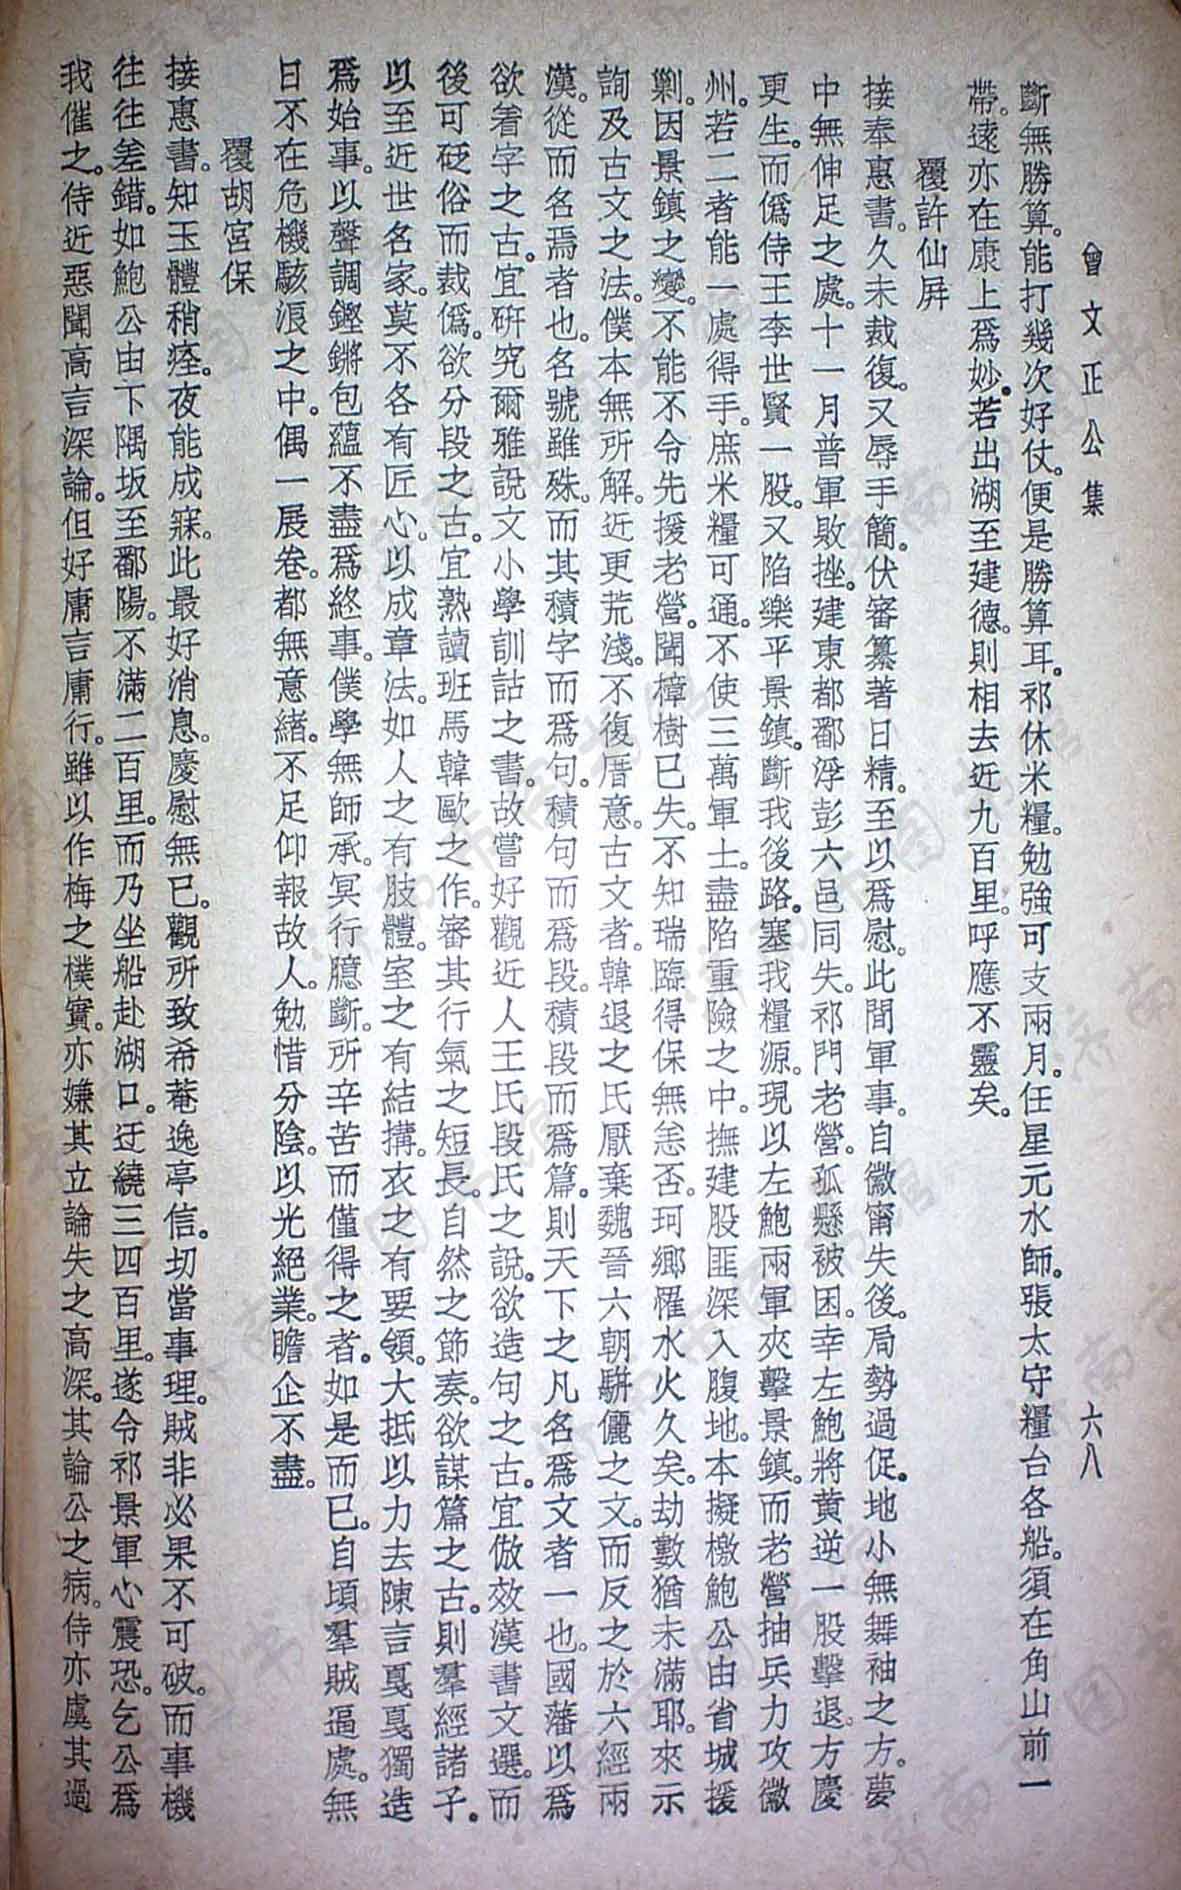 曾文正公集
六八
斷無勝算。能打幾次好仗。便是勝算耳。祁休米糧。勉強可支兩月。任星元水師。張太守糧台各船。須在角山前一
帶。遠亦在康上爲妙。若出湖至建德。則相去近九百里。呼應不靈矣。
覆許仙屛
接奉惠書。久未裁復。又辱手簡。伏審纂著日精。至以爲慰。此間軍事。自徽甯失後。局勢過促。地小無舞袖之方。夢
中無伸足之處。十一月普軍敗挫。建東都鄱浮彭六邑同失。祁門老營。孤懸被困。幸左鮑將黃逆一股擊退。方慶
更生。而僞侍王李世賢一股。又陷樂平景鎮。斷我後路。塞我糧源。現以左鮑兩軍夾擊景鎮。而老營抽兵力攻徽
州。若二者能一處得手。庶米糧可通。不使三萬軍士。盡陷重險之中。撫建股匪深入腹地。本擬檄鮑公由省城援
剿。因景鎮之變。不能不令先援老營。聞樟樹已失。不知瑞臨得保無恙否。珂鄉罹水火久矣。劫數猶未滿耶。來示
詢及古文之法。僕本無所解。近更荒淺。不復厝意。古文者。韓退之氏厭棄魏晉六朝駢儷之文。而反之於六經兩
漢。從而名焉者也。名號雖殊。而其積字而爲句。積句而爲段。積段而爲篇。則天下之凡名爲文者一也。國藩以爲
欲着字之古。宜硏究爾雅說文小學訓詁之書。故嘗好觀近人王氏段氏之說。欲造句之古。宜倣效漢書文選。而
後可砭俗而裁僞。欲分段之古。宜熟讀班馬韓歐之作。審其行氣之短長。自然之節奏。欲謀篇之古。則羣經諸子。
以至近世名家。莫不各有匠心。以成章法。如人之有肢體。室之有結搆。衣之有要領。大抵以力去陳言戛戛獨造
爲始事。以聲調鏗鏘包蘊不盡爲終事。僕學無師承。冥行臆斷。所辛苦而僅得之者。如是而已。自頃羣賊逼處。無
日不在危機駭浪之中。偶一展卷。都無意緒。不足仰報故人。勉惜分陰。以光絕業。瞻企不盡。
覆胡宮保
接惠書。知玉體稍痊。夜能成寐。此最好消息。慶慰無已。觀所致希菴逸亭信。切當事理。賊非必果不可破。而事機
往往差錯。如鮑公由下隅坂至鄱陽。不滿二百里。而乃坐船赴湖口。迂繞三四百里。遂令祁景軍心震恐。乞公爲
我催之。侍近惡聞高言深論。但好庸言庸行。雖以作梅之樸實。亦嫌其立論失之高深。其論公之病。侍亦虞其過